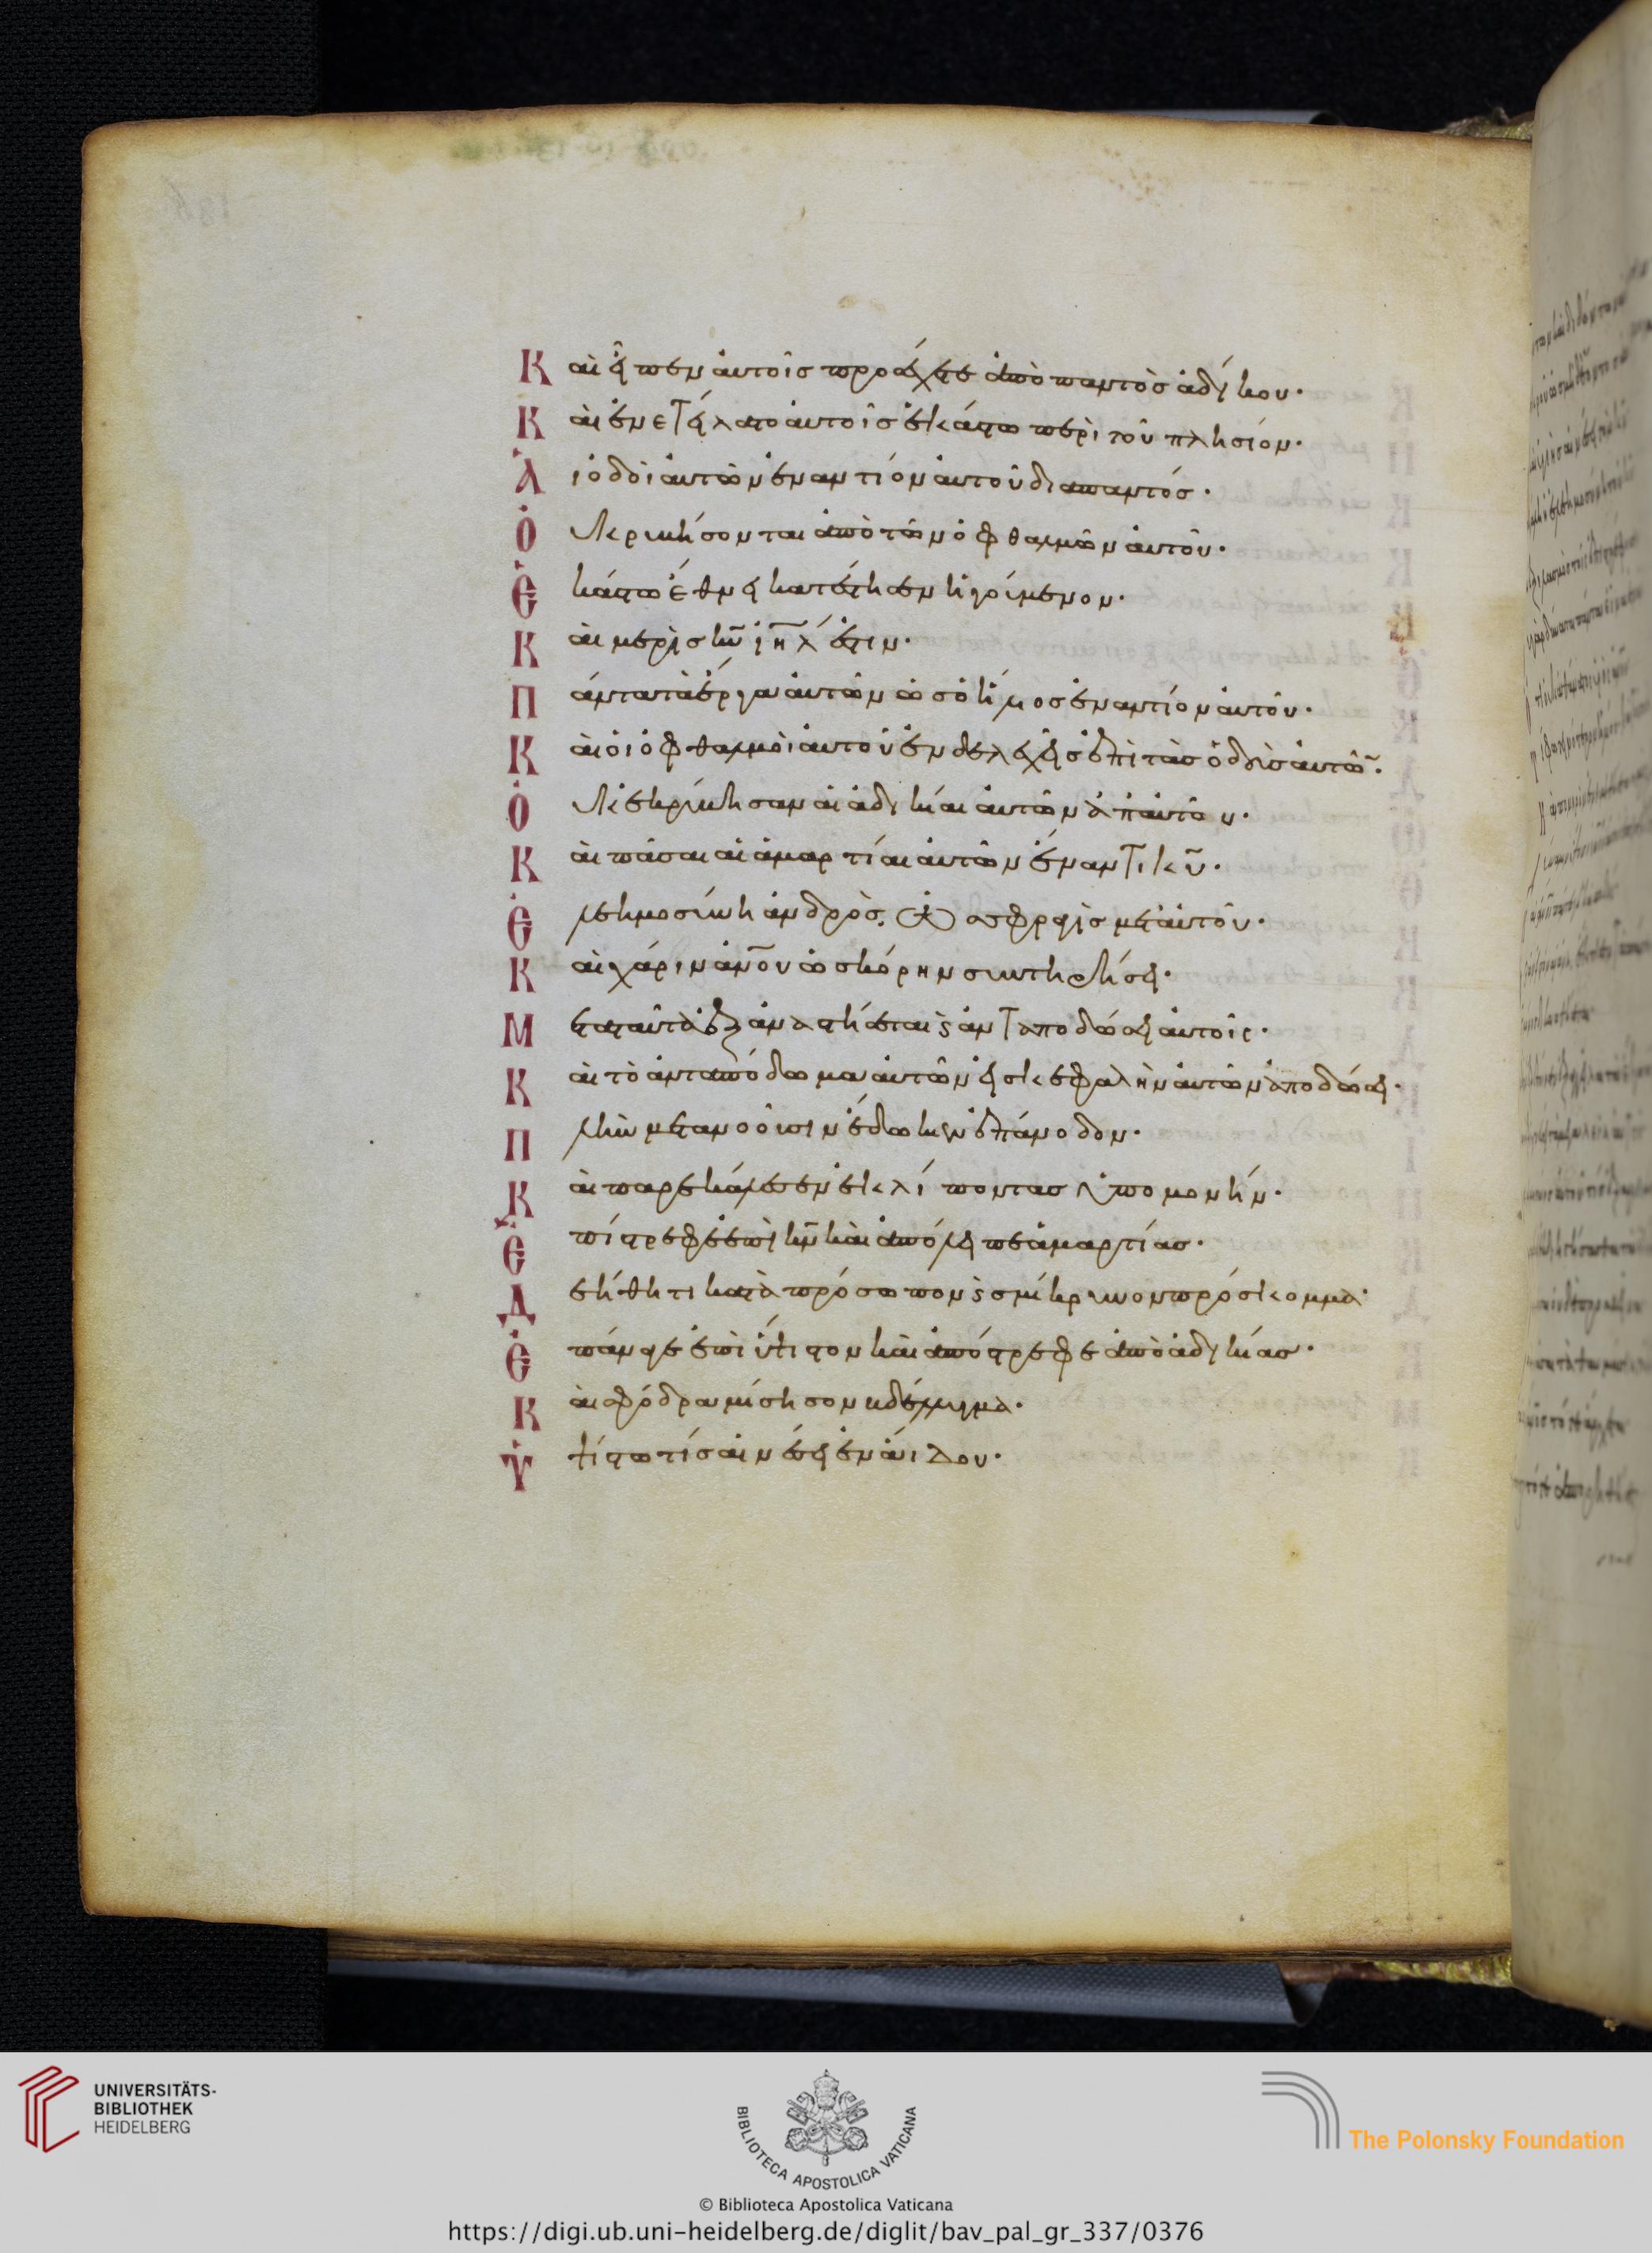 Καὶ εἶπεν αὐτοῖς προσέχετε ἀπὸ παντὸς ἀδίκου·
Καὶ ἐνετείλατο αὐτοῖς ἑκάστω περὶ τοῦ πλησίον·
Αἱ ὁδοὶ αὐτῶν ἐναντίον αὐτοῦ διαπαντός·
Οὐ κρυβήσονται ἀπὸ τῶν ὀφθαλμῶν αὐτοῦ·
Ἑκάστω ἔθνει κατέστησεν ἡγούμενον·
Καὶ μερὶς κ̅υ̅ ι̅η̅λ̅ ἐστιν·
Πάντα τὰ ἔργα αὐτῶν ὡς ὁ ἥλιος ἐναντίον αὐτοῦ·
Καὶ οἱ ὀφθαλμοὶ αὐτοῦ ἐνδελεχεῖς ἐπὶ τὰς ὁδοὺς αὐτῶ̅·
Οὐκ ἐκρύβησαν αἱ ἀδικίαι αὐτῶν ἀπ' αὐτοῦ·
Καὶ πᾶσαι αἱ ἁμαρτίαι αὐτῶν ἔναντι κ̅υ̅·
Ἐλεημοσύνη ἀνδρὸς ὡς σφραγὶς μετ' αὐτοῦ·
Καὶ χάριν ἀν̅ου ὡς κόρην συντηρήσει·
Μετὰ ταῦτα ἐξαναστήσεται ϗ ἀνταποδώσει αὐτοῖς·
Καὶ τὸ ἀνταπόδομα αὐτῶν εἰς κεφαλὴν αὐτῶν ἀποδώσει·
Πλὴν μετανοοῦσιν ἔδωκεν ἐπάνοδον·
Καὶ παρεκάλεσεν ἐκλίποντας ὑπομονήν·
Ἐπίστρεφε ἐπὶ κ̅ν̅ καὶ ἀπόλειπε ἁμαρτίας·
Δεήθητι κατὰ πρόσωπον ϗ σμίκρυνον πρόσκομμα·
Ἐπάναγε ἐπὶ ὕψιστον καὶ ἀπόστρεφε ἀπὸ ἀδικίας·
Καὶ σφόδρα μίσησον βδέλυγμα·
Ὑψίστω τίς αἰνέσει ἐν ἅιδου·
UNIVERSITÄTS-
BIBLIOTHEK
HEIDELBERG
BIBLIOTECA APOSTOLICA VATICANA
© Biblioteca Apostolica Vaticana
The Polonsky Foundation
https://digi.ub.uni-heidelberg.de/diglit/bav_pal_gr_337/0376